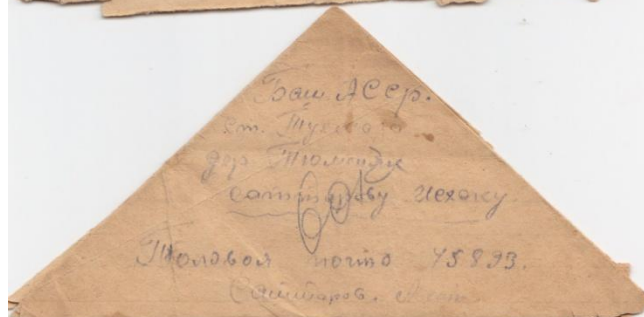 Баш. АССР.
ст. Туймаза
дер. Тюменяк
Саттарову Исхаку.
Полевая почта 75893.
Саттаров.